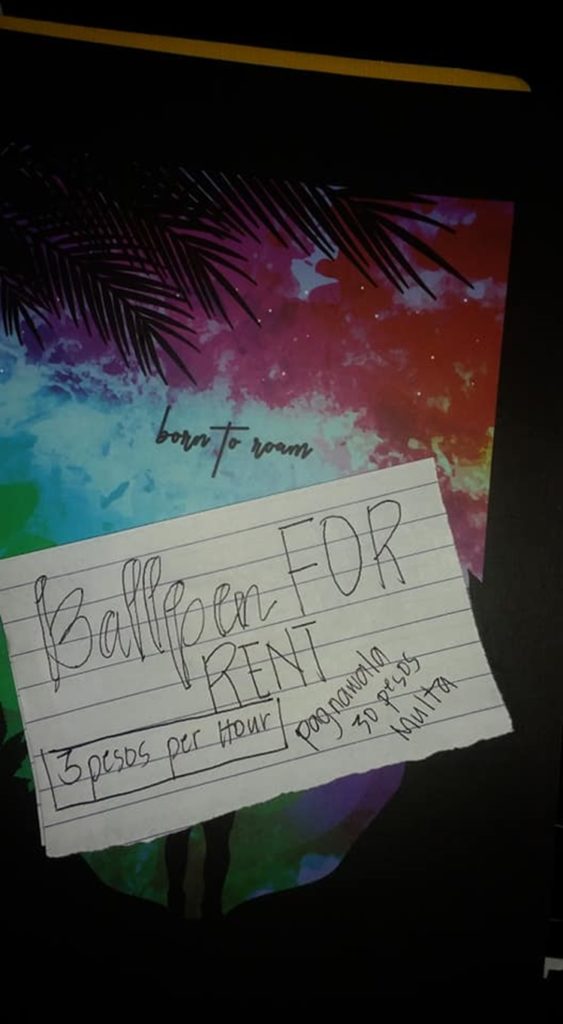 born to roam
Ballpen FOR
RENT
3 pesos per Hour
pagnawala
30 pesos
Multa